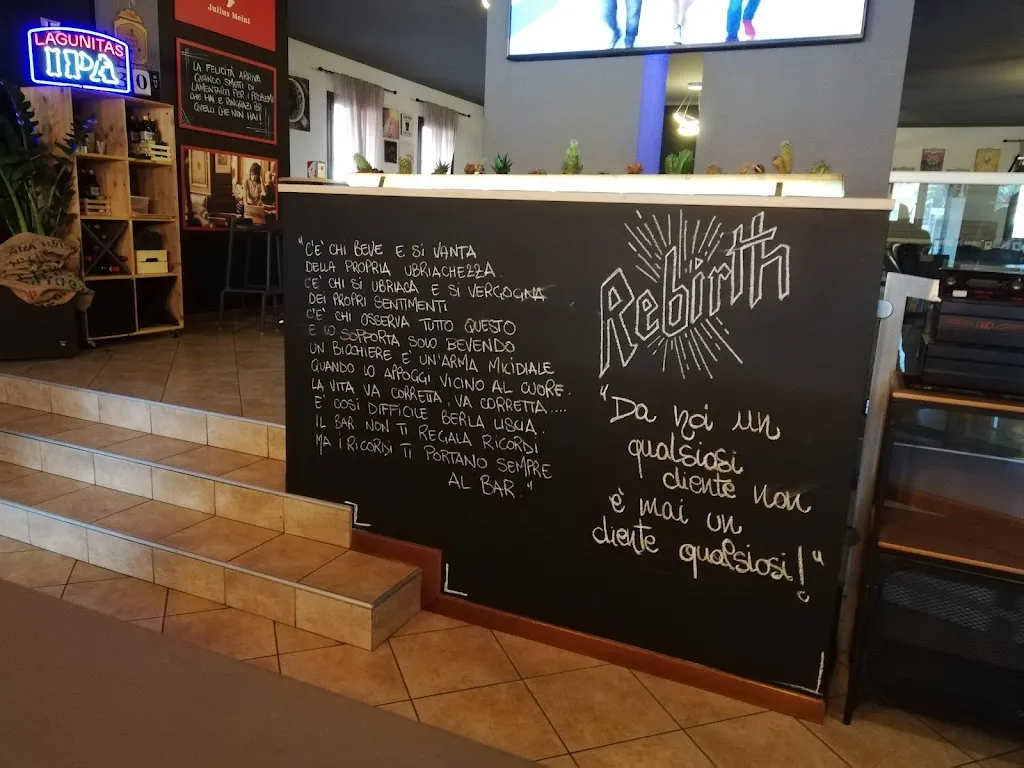 LAGUNITAS
IPA
Julius Meinl
LA FELICITÀ ARRIVA
QUANDO SMETTI DI
LAMENTARTI PER I PROBLEMI
CHE HAI E RINGRAZI PER
QUELLI CHE NON HAI!
"C'E' CHI BEVE E SI VANTA
DELLA PROPRIA UBRIACHEZZA.
C'E' CHI SI UBRIACA E SI VERGOGNA
DEI PROPRI SENTIMENTI
C'E' CHI OSSERVA TUTTO QUESTO
E LO SOPPORTA SOLO BEVENDO
UN BICCHIERE E' UN'ARMA MICIDIALE
QUANDO LO APPOGGI VICINO AL CUORE.
LA VITA VA CORRETTA, VA CORRETTA....
E' COSÌ DIFFICILE BERLA LISCIA.
IL BAR NON TI REGALA RICORDI
MA I RICORDI TI PORTANO SEMPRE
AL BAR."
Rebirth
"Da noi un
qualsiosi
cliente non
è mai un
cliente qualsiosi!"